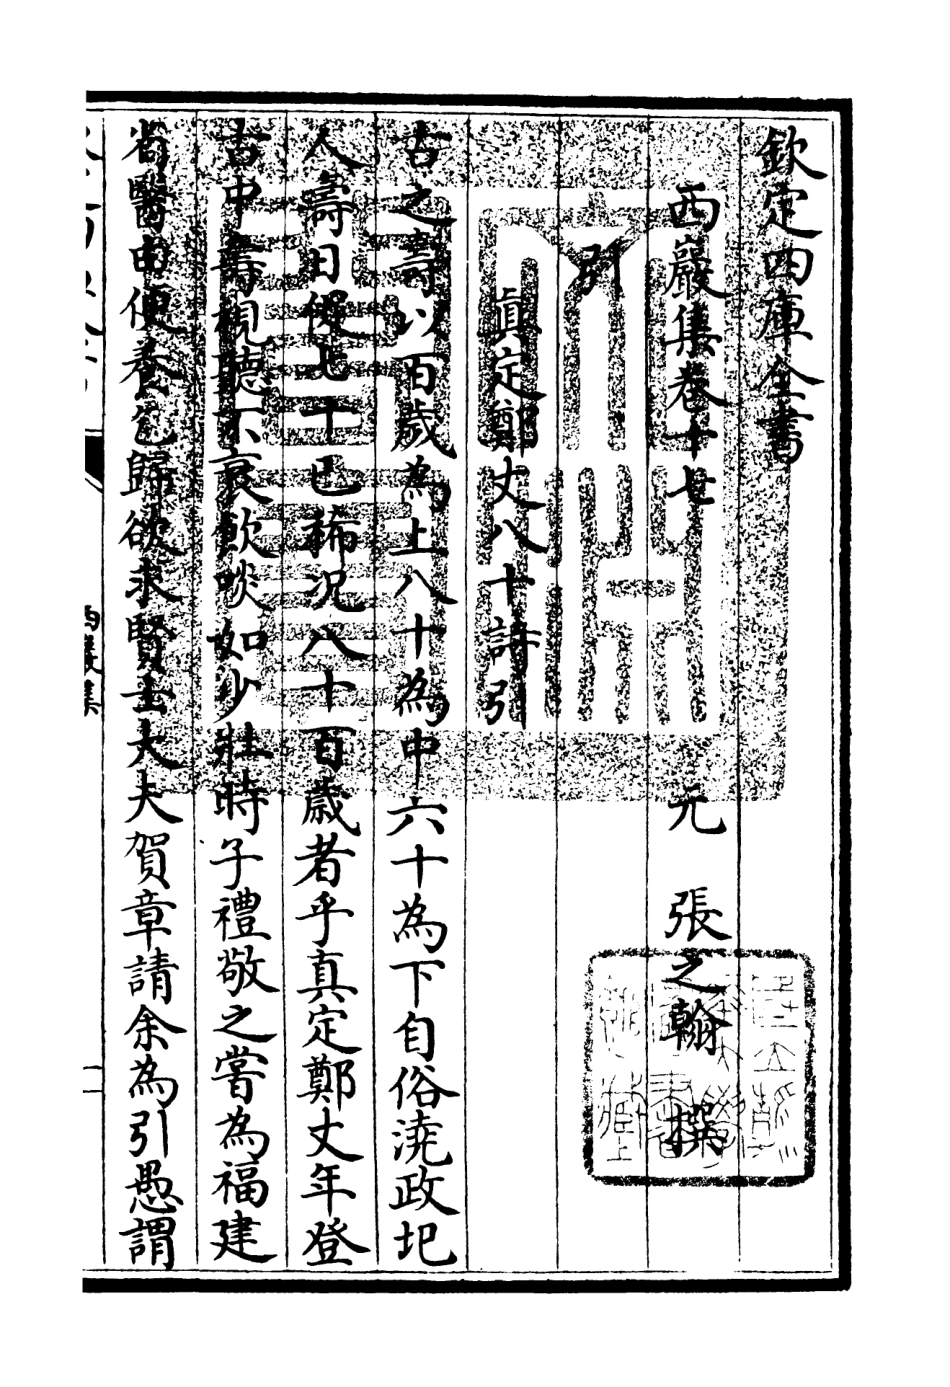 欽定四庫全書
西巖集卷十七
元 張之翰 撰
引
真定鄭丈八十詩引
古之壽以百歲為上八十為中六十為下自俗澆政圮
人壽日促七十已稀况八十百歲者乎真定鄭丈年登
古中壽視聽不衰飲啖如少壯時子禮敬之嘗為福建
省醫由便養乞歸欲求賢士大夫賀章請余為引愚謂
西巖集